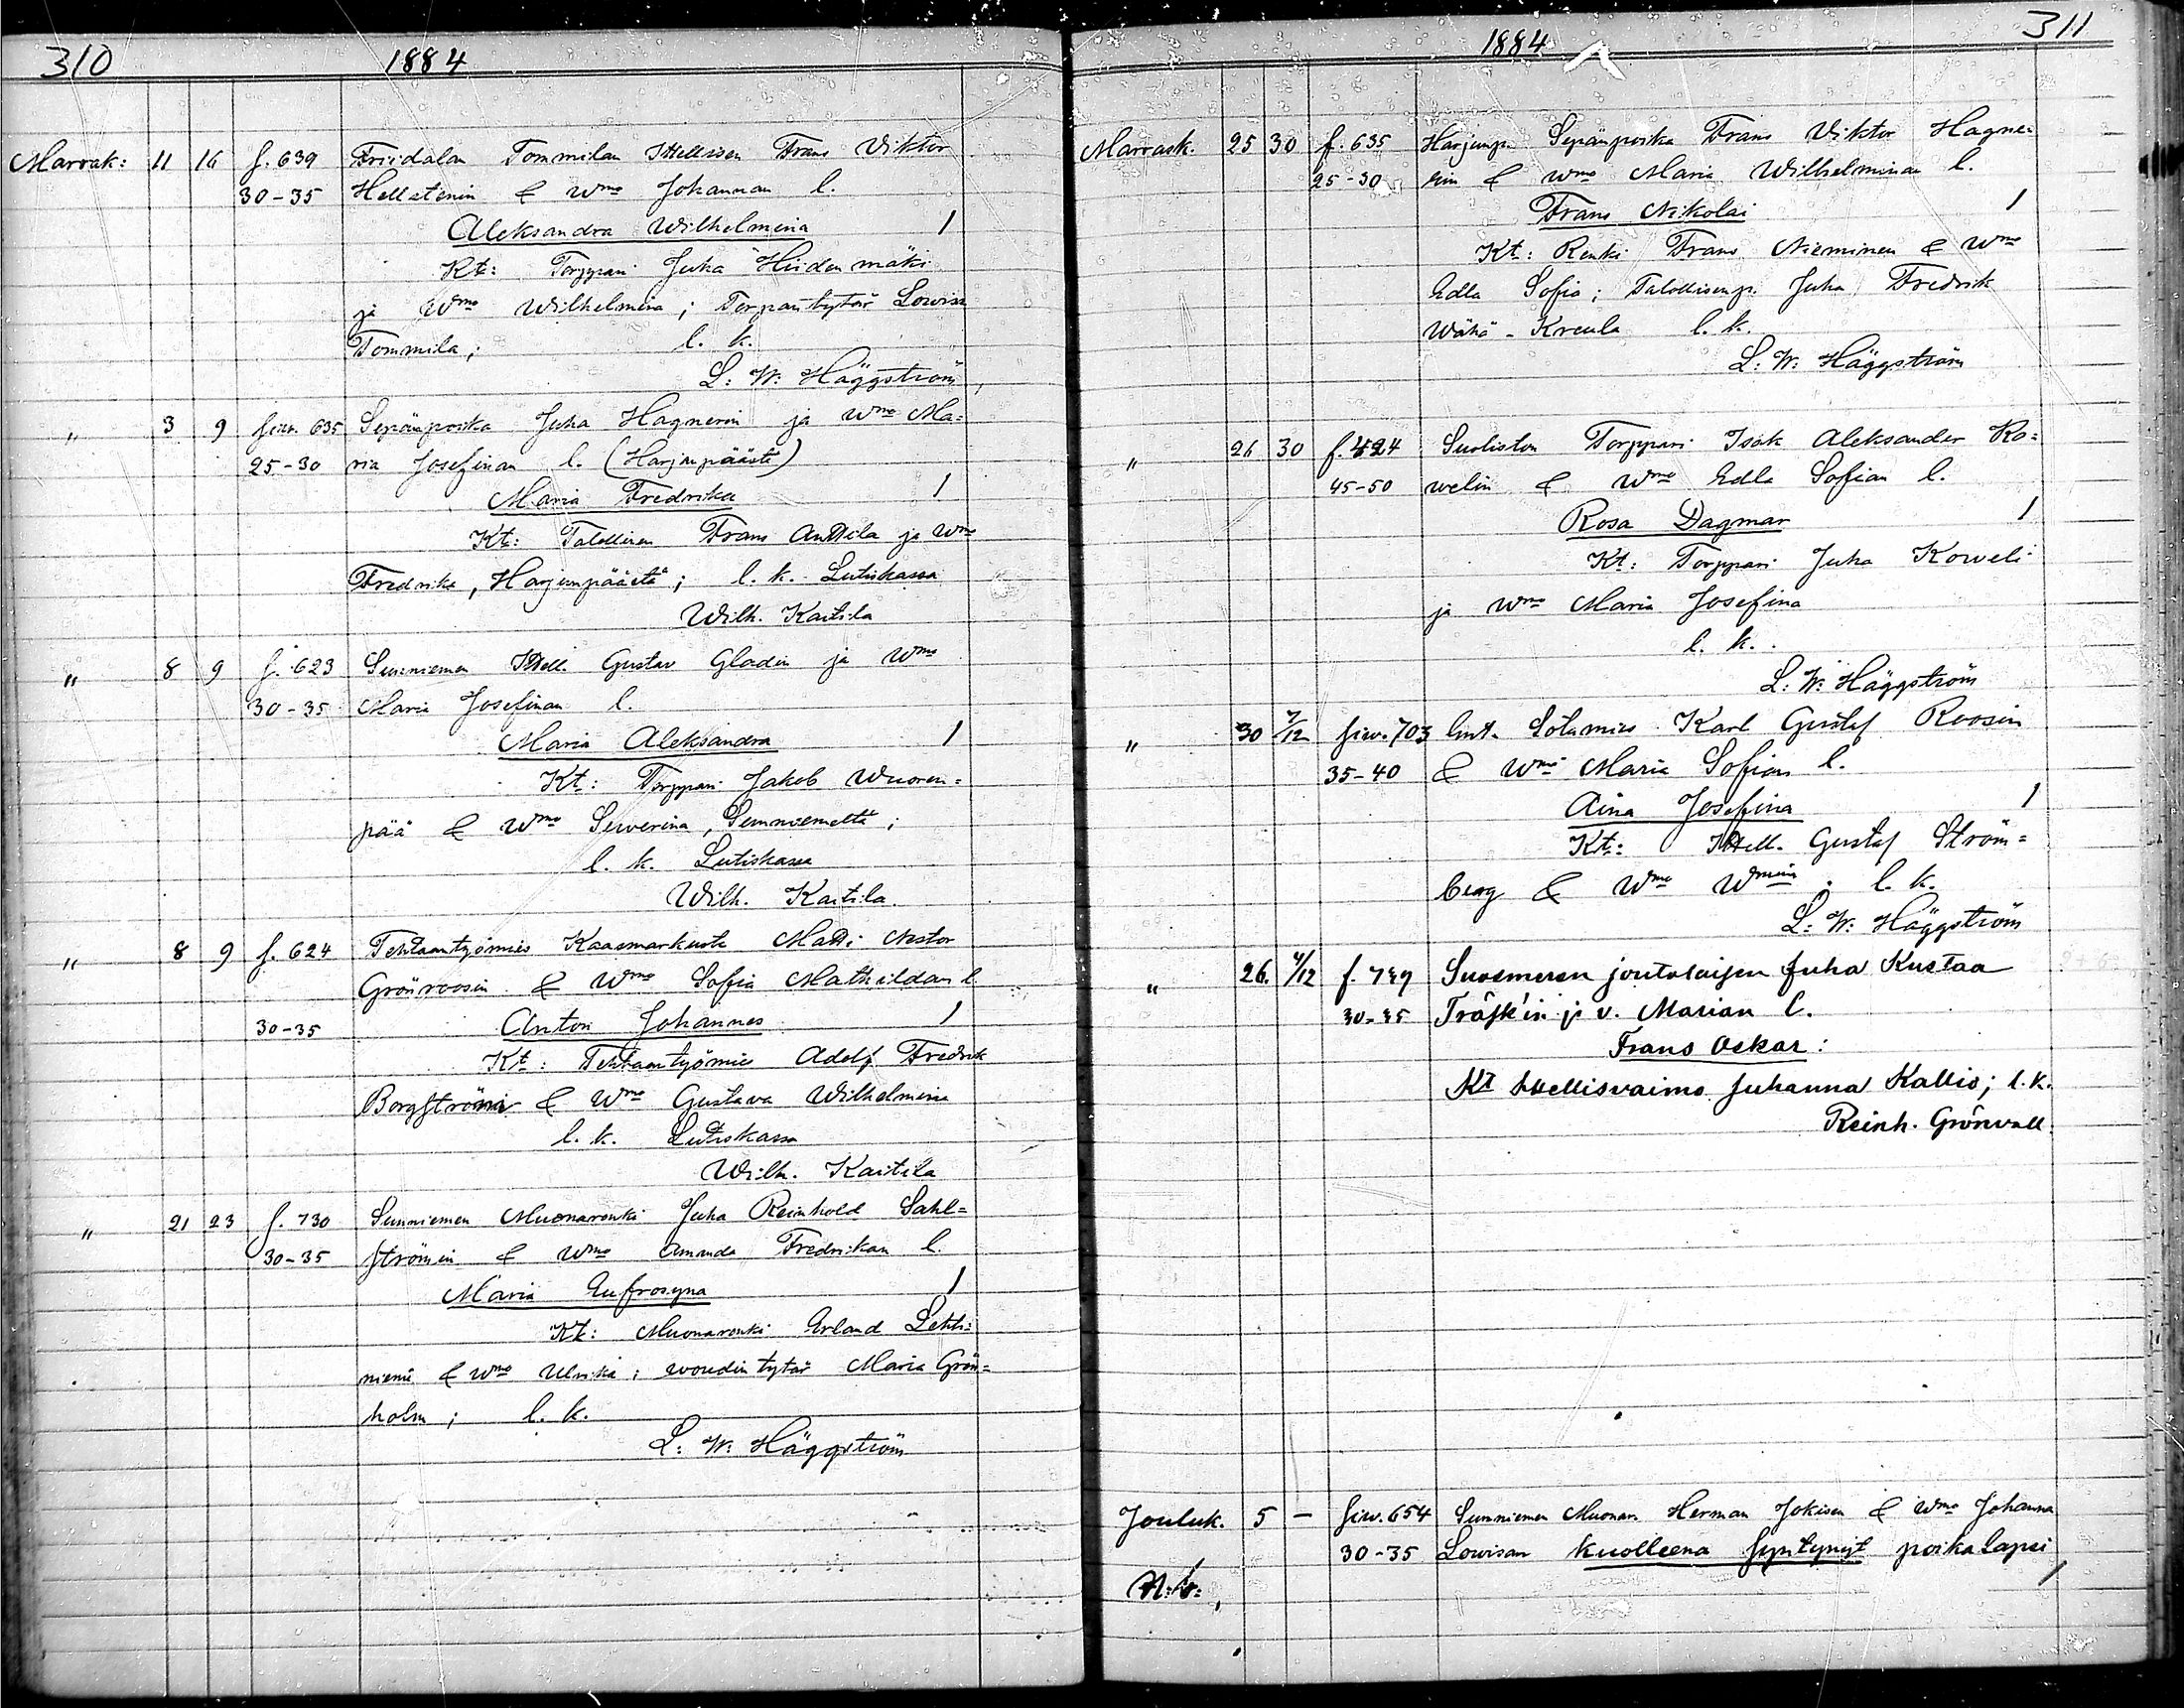 310
1884
Marrak: 11 16 f. 639 Friidalan Tommilan Ittellisen Frans Viktor
30-35 Hellstenin & Wmo Johannan l.
Aleksandra Wilhelmina 1
Kt: Torppari Juha Hiidenmäki
ja Wmo Wilhelmina; Torpantytär Lowisa
Tommila; l. k.
L: W: Häggström
„ 3 9 siw. 635 Sepänpoika Juha Hagnerin ja Wmo Ma=
25-30 ria Josefinan l. (Harjunpäästä)
Maria Fredrika 1
Kt: Talollinen Frans Anttila ja Wmo
Fredrika, Harjunpäästä; l. k. Lutiskassa
Wilh. Kaitila
„ 8 9 f. 623 Sunniemen Ittell. Gustav Gladin ja Wmo
30-35 Maria Josefinan l.
Maria Aleksandra 1
Kt: Torppari Jakob Wuoren=
pää & Wmo Serverina, Sunniemeltä;
l. k. Lutiskassa
Wilh. Kaitila.
„ 8 9 f. 624 Tehtaantyömies Kaasmarkusta Matti Nestor
Grönroosin & Wmo Sofia Mathildan l.
30-35 Anton Johannes 1
Kt: Tehtaantyömies Adolf Fredrik
Borgström & Wmo Gustava Wilhelmina
l. k. Lutiskassa
Wilh. Kaitila
„ 21 23 f. 730 Sunniemen Muonarenki Juha Reinhold Sahl=
30-35 strömin & Wmo Amanda Fredrikan l.
Maria Eufrosyna 1
Kt: Muonarenki Erland Lehti=
niemi & Wmo Ulrika; woudin tytär Maria Grön=
holm; l. k.
L: W: Häggström
1884
311
Marrask. 25 30 f. 635 Harjunp. Sepänpoika Frans Viktor Hagne=
25-30 rin & Wmo Maria Wilhelminan l.
Frans Nikolai 1
Kt: Renki Frans Nieminen & Wmo
Edla Sofia; Talollisenp. Juha Fredrik
Wähä-Kreula l. k.
L: W: Häggström
„ 26 30 f. 424 Suoliston Torppari Isak Aleksander Ko=
45-50 welin & Wmo Edla Sofian l.
Rosa Dagmar 1
Kt: Torppari Juha Koweli
ja Wmo Maria Josefina
l. k.
L: W: Häggström
„ 30 7/12 siw. 703 Ent. Sotamies Karl Gustaf Roosin
35-40 & Wmo Maria Sofian l.
Aina Josefina 1
Kt: Ittell. Gustaf Ström=
berg & Wmo Wmina. l. k.
L: W: Häggström
„ 26. 4/12 f. 749 Suosmeren joutolaisen Juha Kustaa
30-35 Träsk'in ja v. Marian l.
Frans Oskar:
Kt Ittellisvaimo Juhanna Kallio; l. k.
Reinh. Grönvall.
Jouluk. 5 - siw. 654 Sunniemen Muonar. Herman Jokisen & Wmo Johanna
30-35 Lowisan kuolleena syntynyt poika lapsi 1